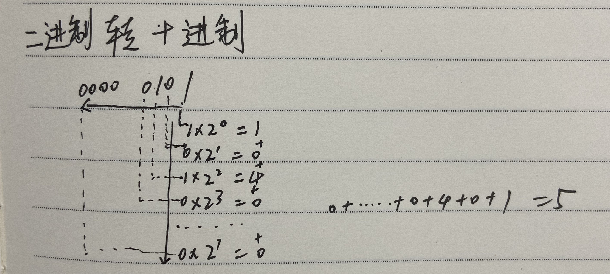 二进制 转 十进制
0000 0101
1×2⁰ = 1
+
0×2¹ = 0
+
1×2² = 4
+
0×2³ = 0
.......
+
0×2⁷ = 0
0+·····+0+4+0+1 =5